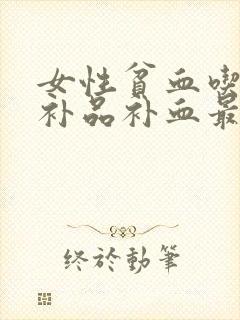 女性貧血喫
补品补血最
终於動筆